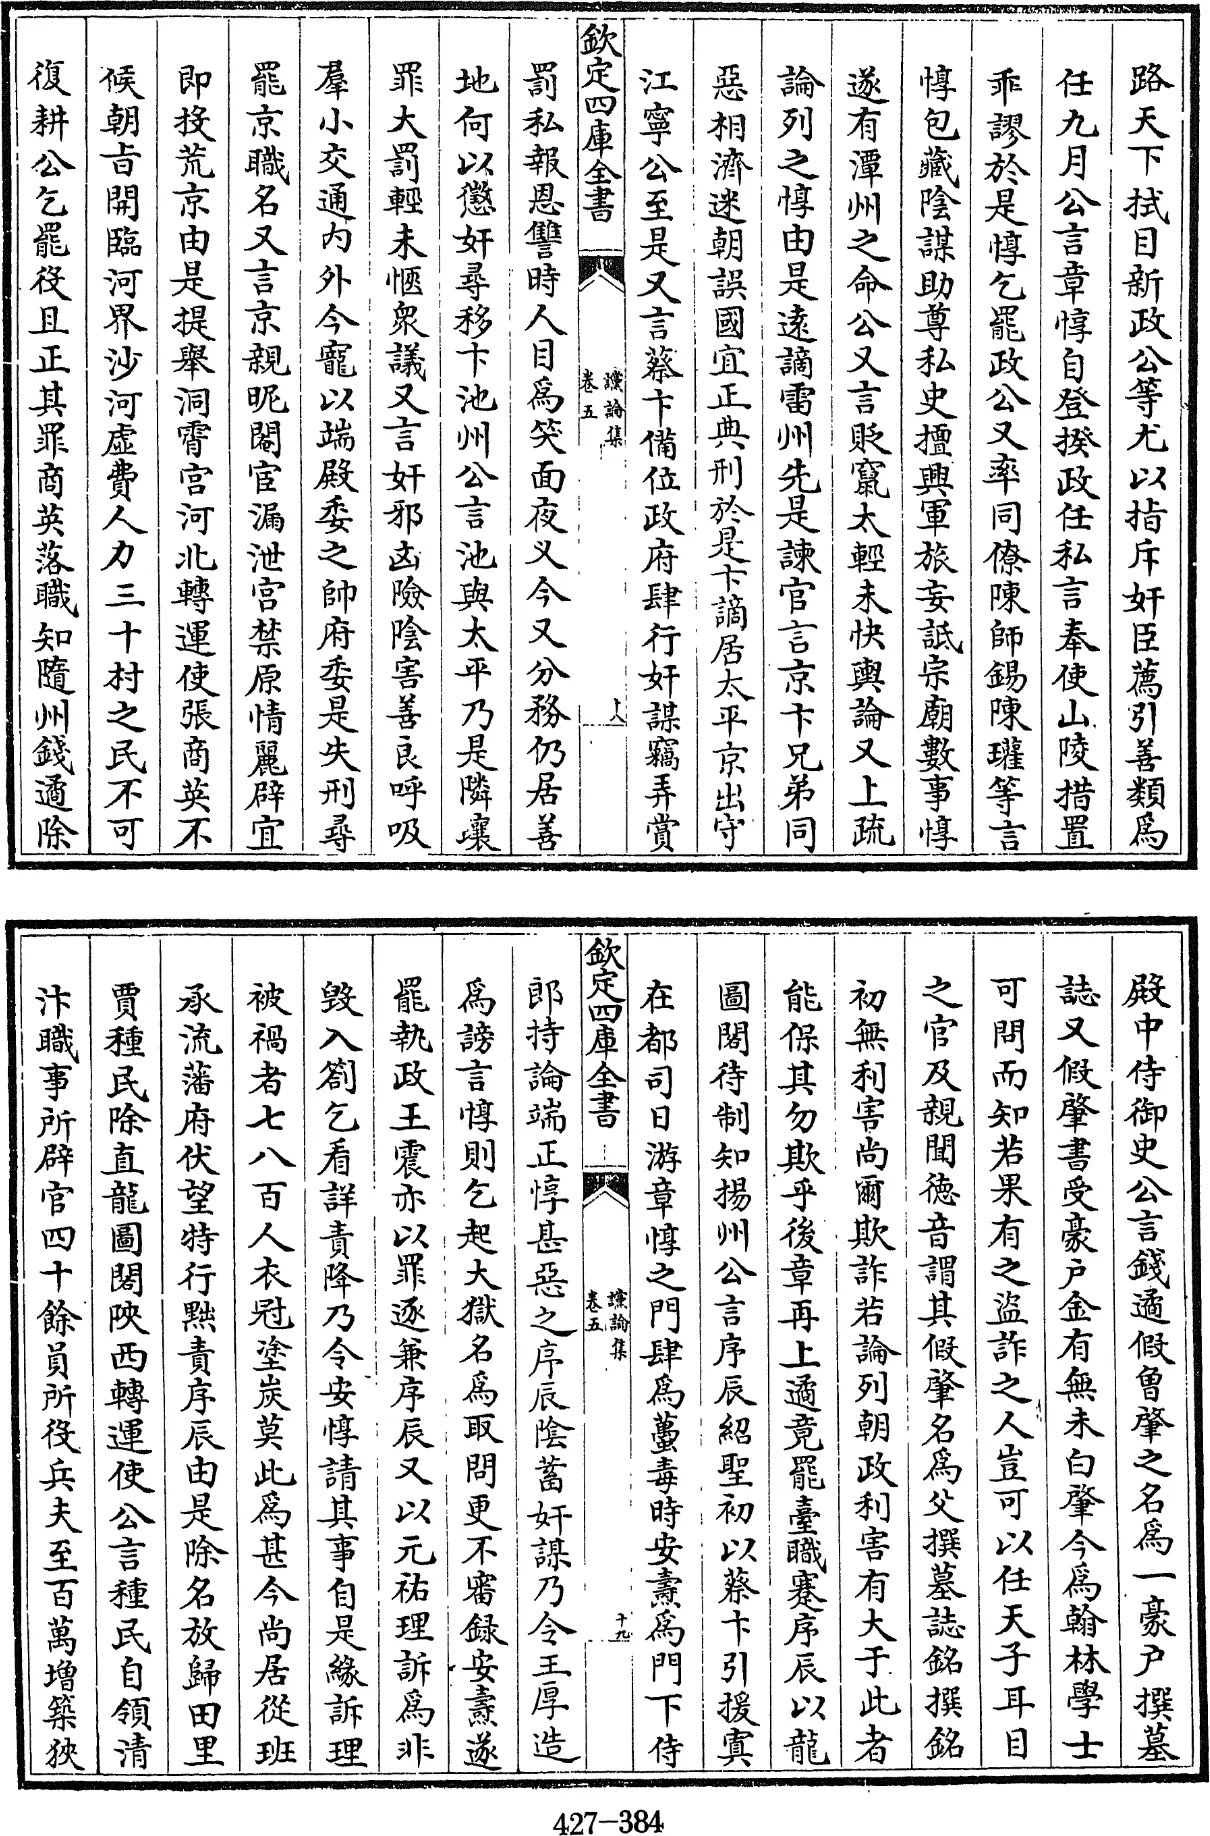 路天下拭目新政公等尤以指斥奸臣薦引善類爲
任九月公言章惇自登揆政任私言奉使山陵措置
乖謬於是惇乞罷政公又率同僚陳師錫陳瓘等言
惇包藏陰謀助尊私史擅興軍旅妄詆宗廟數事惇
遂有潭州之命公又言貶竄太輕未快輿論又上疏
論列之惇由是遠謫雷州先是諫官言京卞兄弟同
惡相濟迷朝誤國宜正典刑於是卞謫居太平京出守
江寧公至是又言蔡卞備位政府肆行奸謀竊弄賞
欽定四庫全書
讜論集
卷五
十八
罰私報恩讐時人目爲笑面夜义今又分務仍居善
地何以懲奸尋移卞池州公言池與太平乃是隣壤
罪大罰輕未愜衆議又言奸邪凶險陰害善良呼吸
羣小交通内外今寵以端殿委之帥府委是失刑尋
罷京職名又言京親昵閹宦漏泄宫禁原情麗辟宜
即投荒京由是提舉洞霄宫河北轉運使張商英不
候朝㫖開臨河界沙河虚費人力三十村之民不可
復耕公乞罷役且正其罪商英落職知隨州錢遹除
殿中侍御史公言錢遹假曾肇之名爲一豪户撰墓
誌又假肇書受豪户金有無未白肇今爲翰林學士
可問而知若果有之盜詐之人豈可以任天子耳目
之官及親聞德音謂其假肇名爲父撰墓誌銘撰銘
初無利害尚爾欺詐若論列朝政利害有大于此者
能保其勿欺乎後章再上遹竟罷臺職蹇序辰以龍
圖閣待制知揚州公言序辰紹聖初以蔡卞引援寘
在都司日游章惇之門肆爲蠆毒時安燾爲門下侍
欽定四庫全書
讜論集
卷五
十九
郎持論端正惇甚惡之序辰陰蓄奸謀乃令王厚造
爲謗言惇則乞起大獄名爲取問更不審録安燾遂
罷執政王震亦以罪逐兼序辰又以元祐理訴爲非
毁入劄乞看詳責降乃令安惇請其事自是緣訴理
被禍者七八百人衣冠塗炭莫此爲甚今尚居從班
承流藩府伏望特行黜責序辰由是除名放歸田里
賈種民除直龍圖閣陜西轉運使公言種民自領清
汴職事所辟官四十餘員所役兵夫至百萬增築狹
427-384